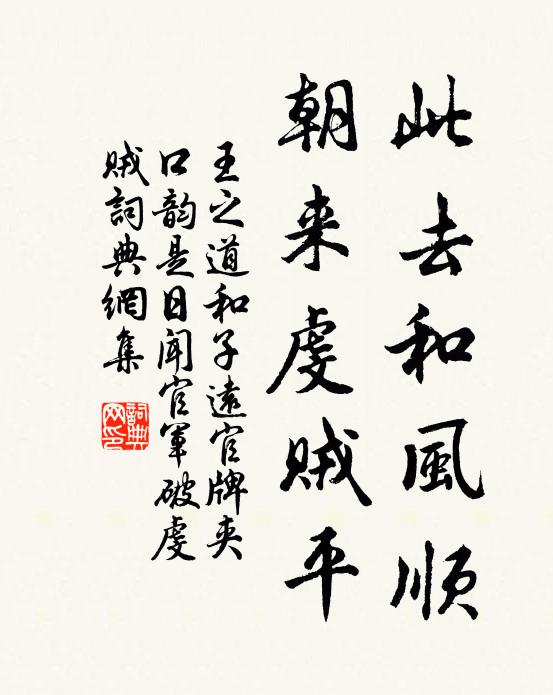 此去和風順
朝来虔賊平
王之道和子遠官牌夹
口韵是日聞官軍破虔
賊詞典網集
詞典
网印